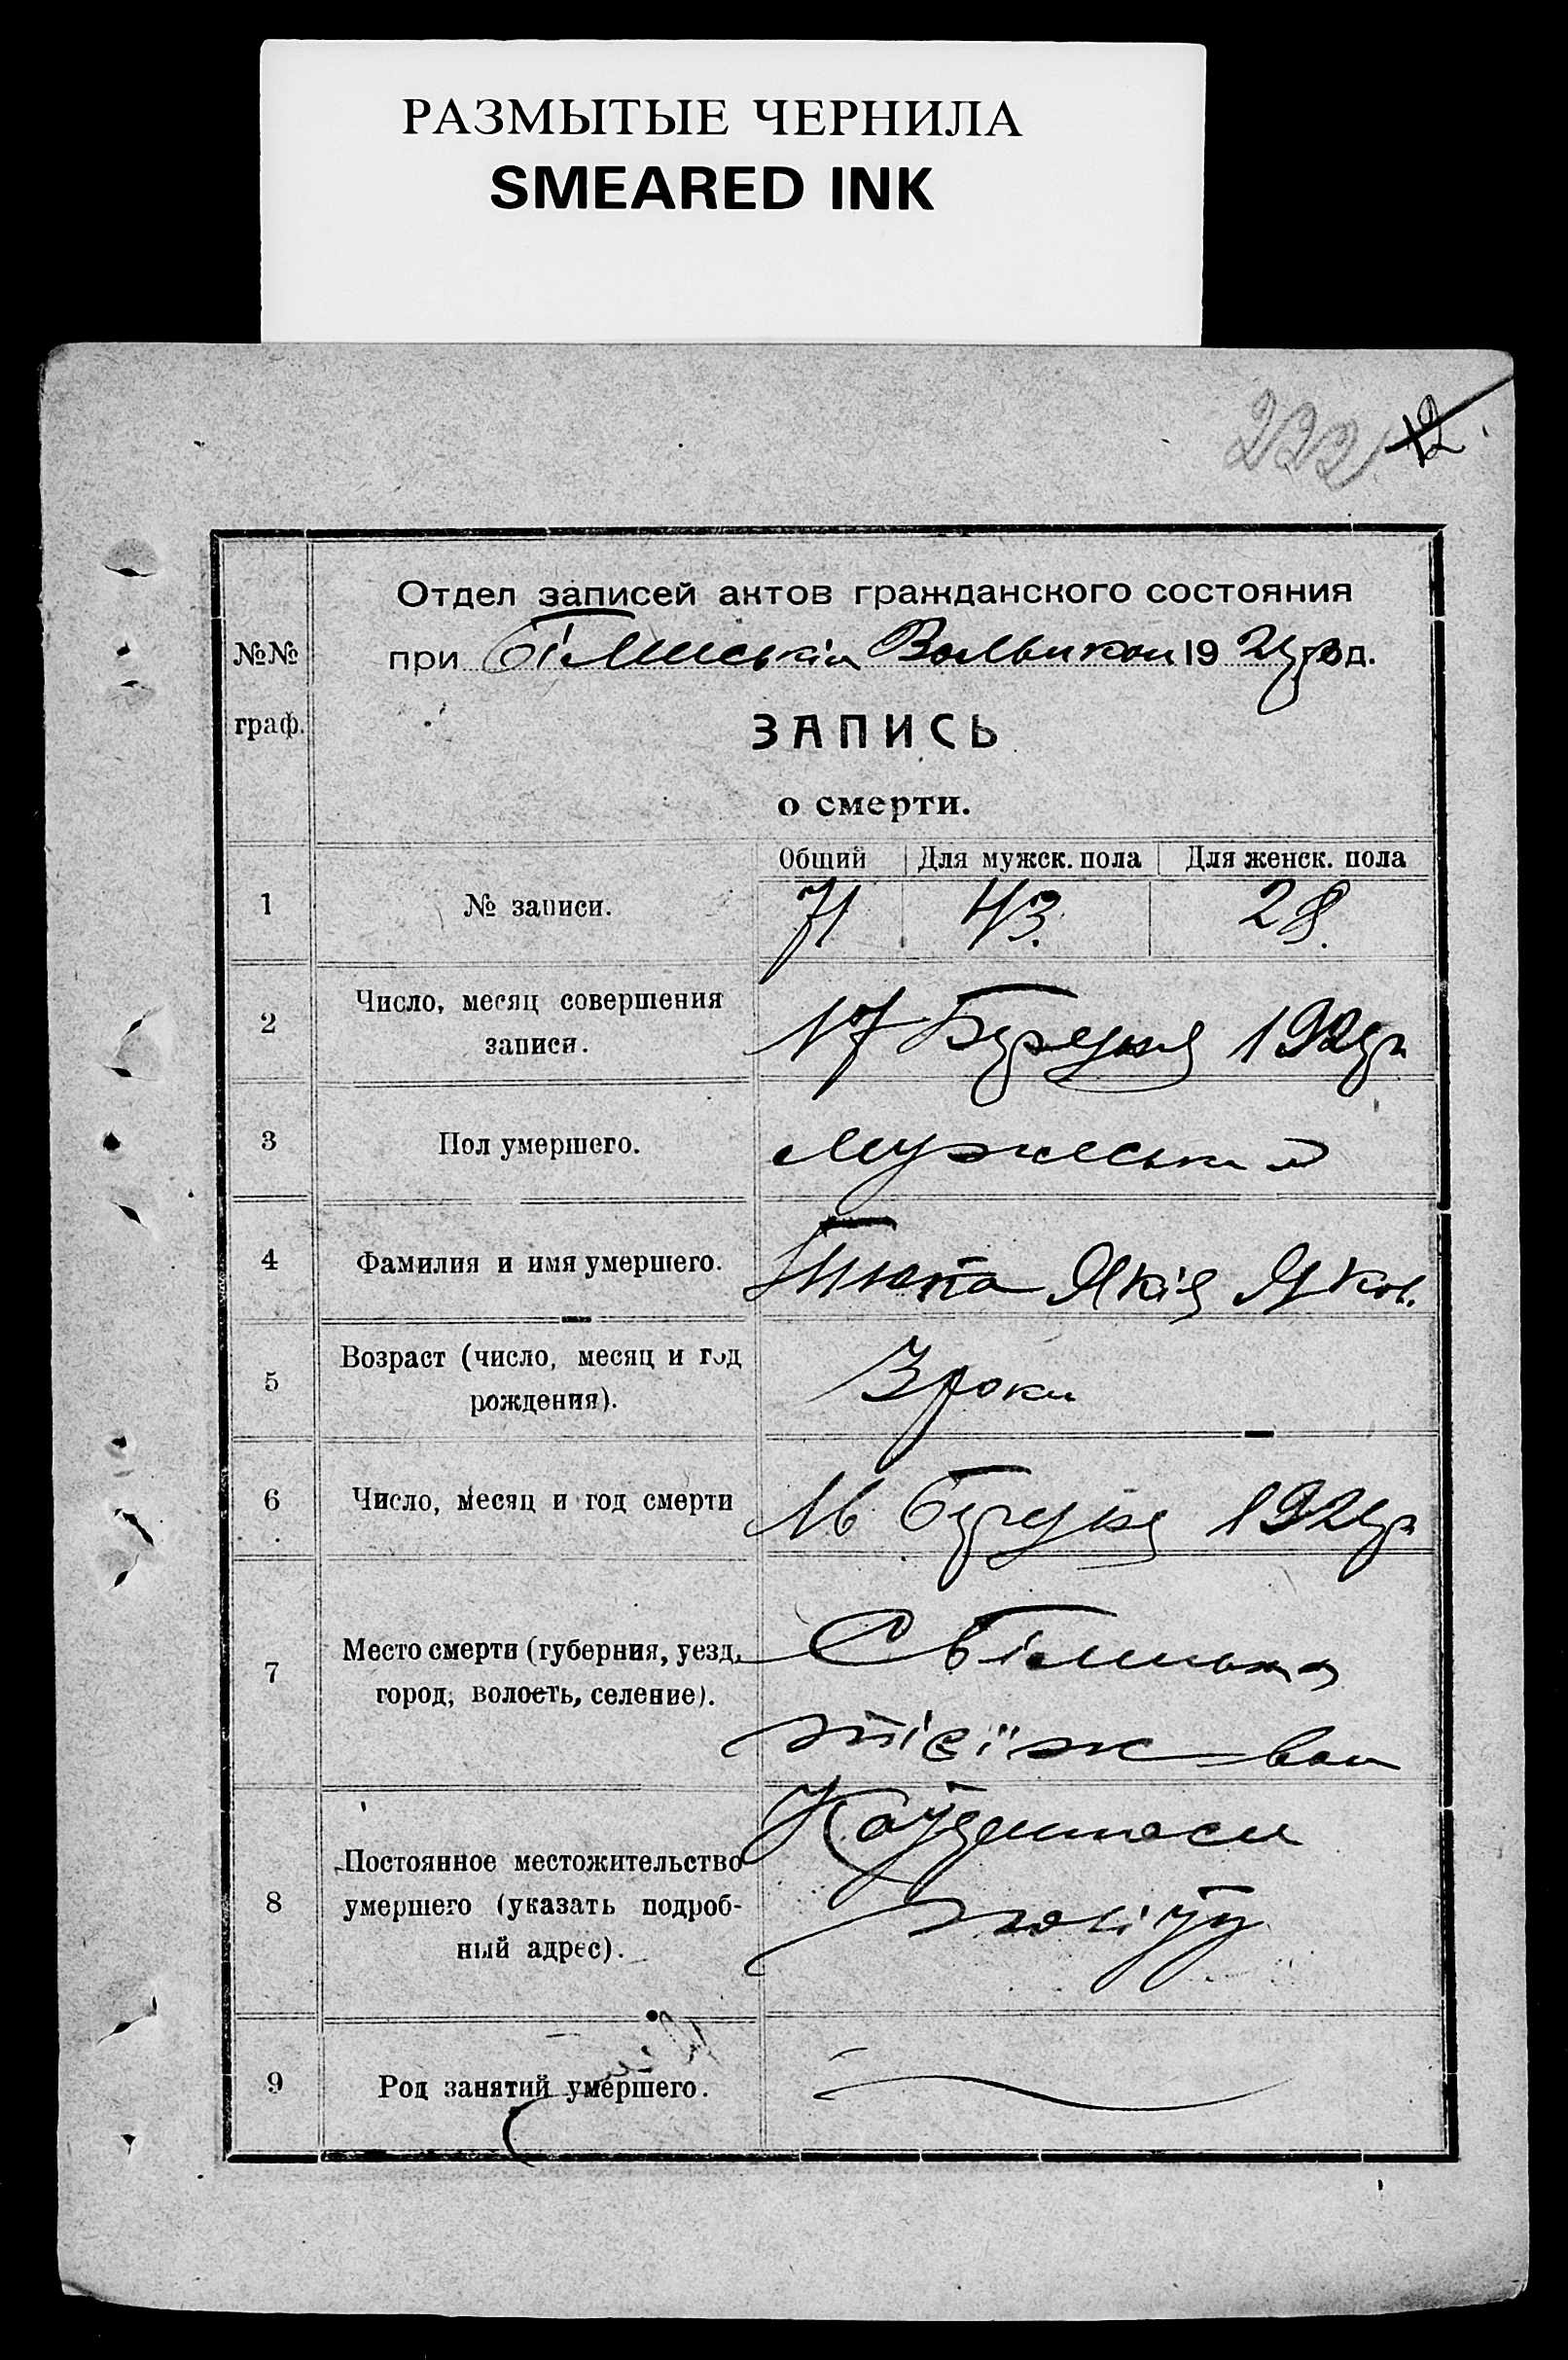 РАЗМЫТЫЕ ЧЕРНИЛА
SMEARED INK
222 12
№№ граф.
Отдел записей актов гражданского состояния
при Волвиком 192 год.
ЗАПИСЬ
о смерти.
Общий Для мужск. пола Для женск. пола
1 № записи. 71 43. 28.
2 Число, месяц совершения
записи.
17 192
3 Пол умершего. Мужеський
4 Фамилия и имя умершего. Яків Яков.
5 Возраст (число, месяц и год
рождения).
3 роки
6 Число, месяц и год смерти 16 192
7 Место смерти (губерния, уезд,
город, волость, селение).
С
тієїж вол
8 Постоянное местожительство
умершего (указать подроб-
ный адрес).
9 Род занятий умершего.